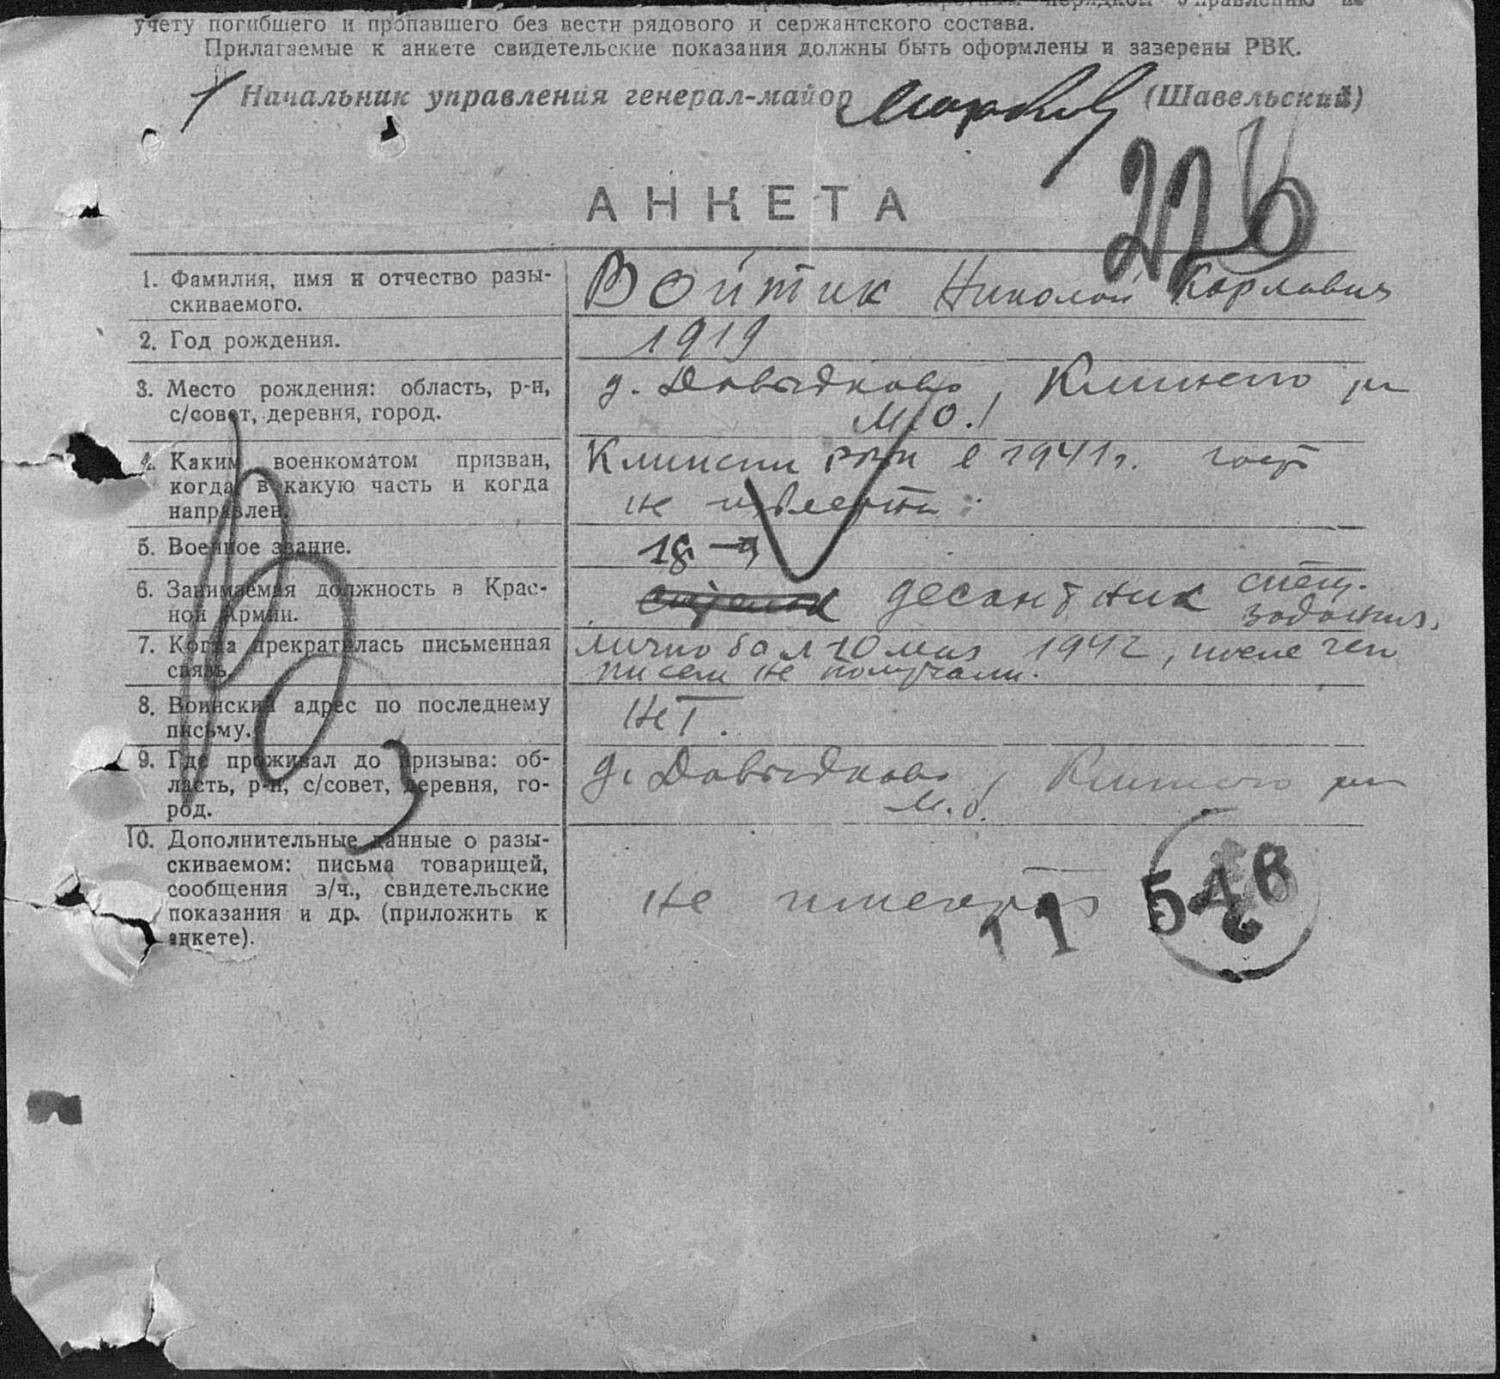 учету погибшего и пропавшего без вести рядового и сержантского состава.
Прилагаемые к анкете свидетельские показания должны быть оформлены и зазерены РВК.
Начальник управления генерал-майор (Шавельский)
226
АНКЕТА
1. Фамилия, имя и отчество разы-
скиваемого.
Войтик Николай Карлович
2. Год рождения.
1919
3. Место рождения: область, р-н,
с/совет, деревня, город.
д. Давыдково, Клинского р-н
М.О.
4. Каким военкоматом призван,
когда, в какую часть и когда
направлен.
Клински РВК в 1941 г. часть
не известна
5. Военное звание.
6. Занимаемая должность в Крас-
ной Армии.
стрелок десантник спец.
задания.
7. Когда прекратилась письменная
связь.
лично был 10 мая 1942, после чего
писем не получали.
8. Воинский адрес по последнему
письму.
нет.
9. Где проживал до призыва: об-
ласть, р-н, с/совет, деревня, го-
род.
д. Давыдково, Клинского р-н
М.О.
10. Дополнительные данные о разы-
скиваемом: письма товарищей,
сообщения з/ч., свидетельские
показания и др. (приложить к
анкете).
не имеется